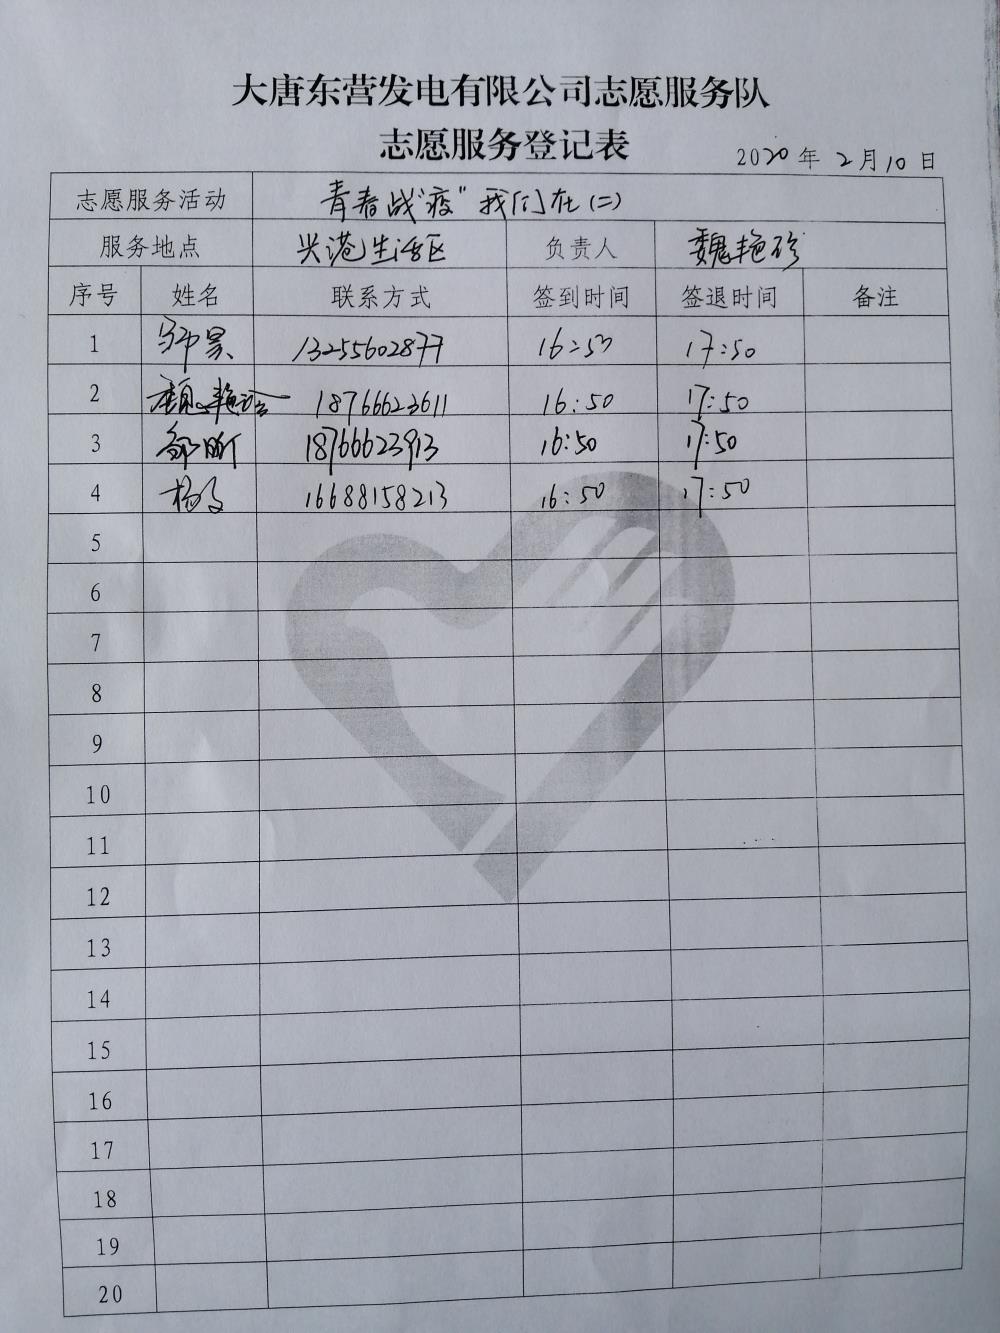 大唐东营发电有限公司志愿服务队
志愿服务登记表
2020年2月10日
志愿服务活动 青春战"疫"我们在(二)
服务地点 兴港生活区 负责人 魏艳珍
序号 姓名 联系方式 签到时间 签退时间 备注
1 13255602877 16:50 17:50
2 18766623611 16:50 17:50
3 18766623913 16:50 17:50
4 16688158213 16:50 17:50
5
6
7
8
9
10
11
12
13
14
15
16
17
18
19
20